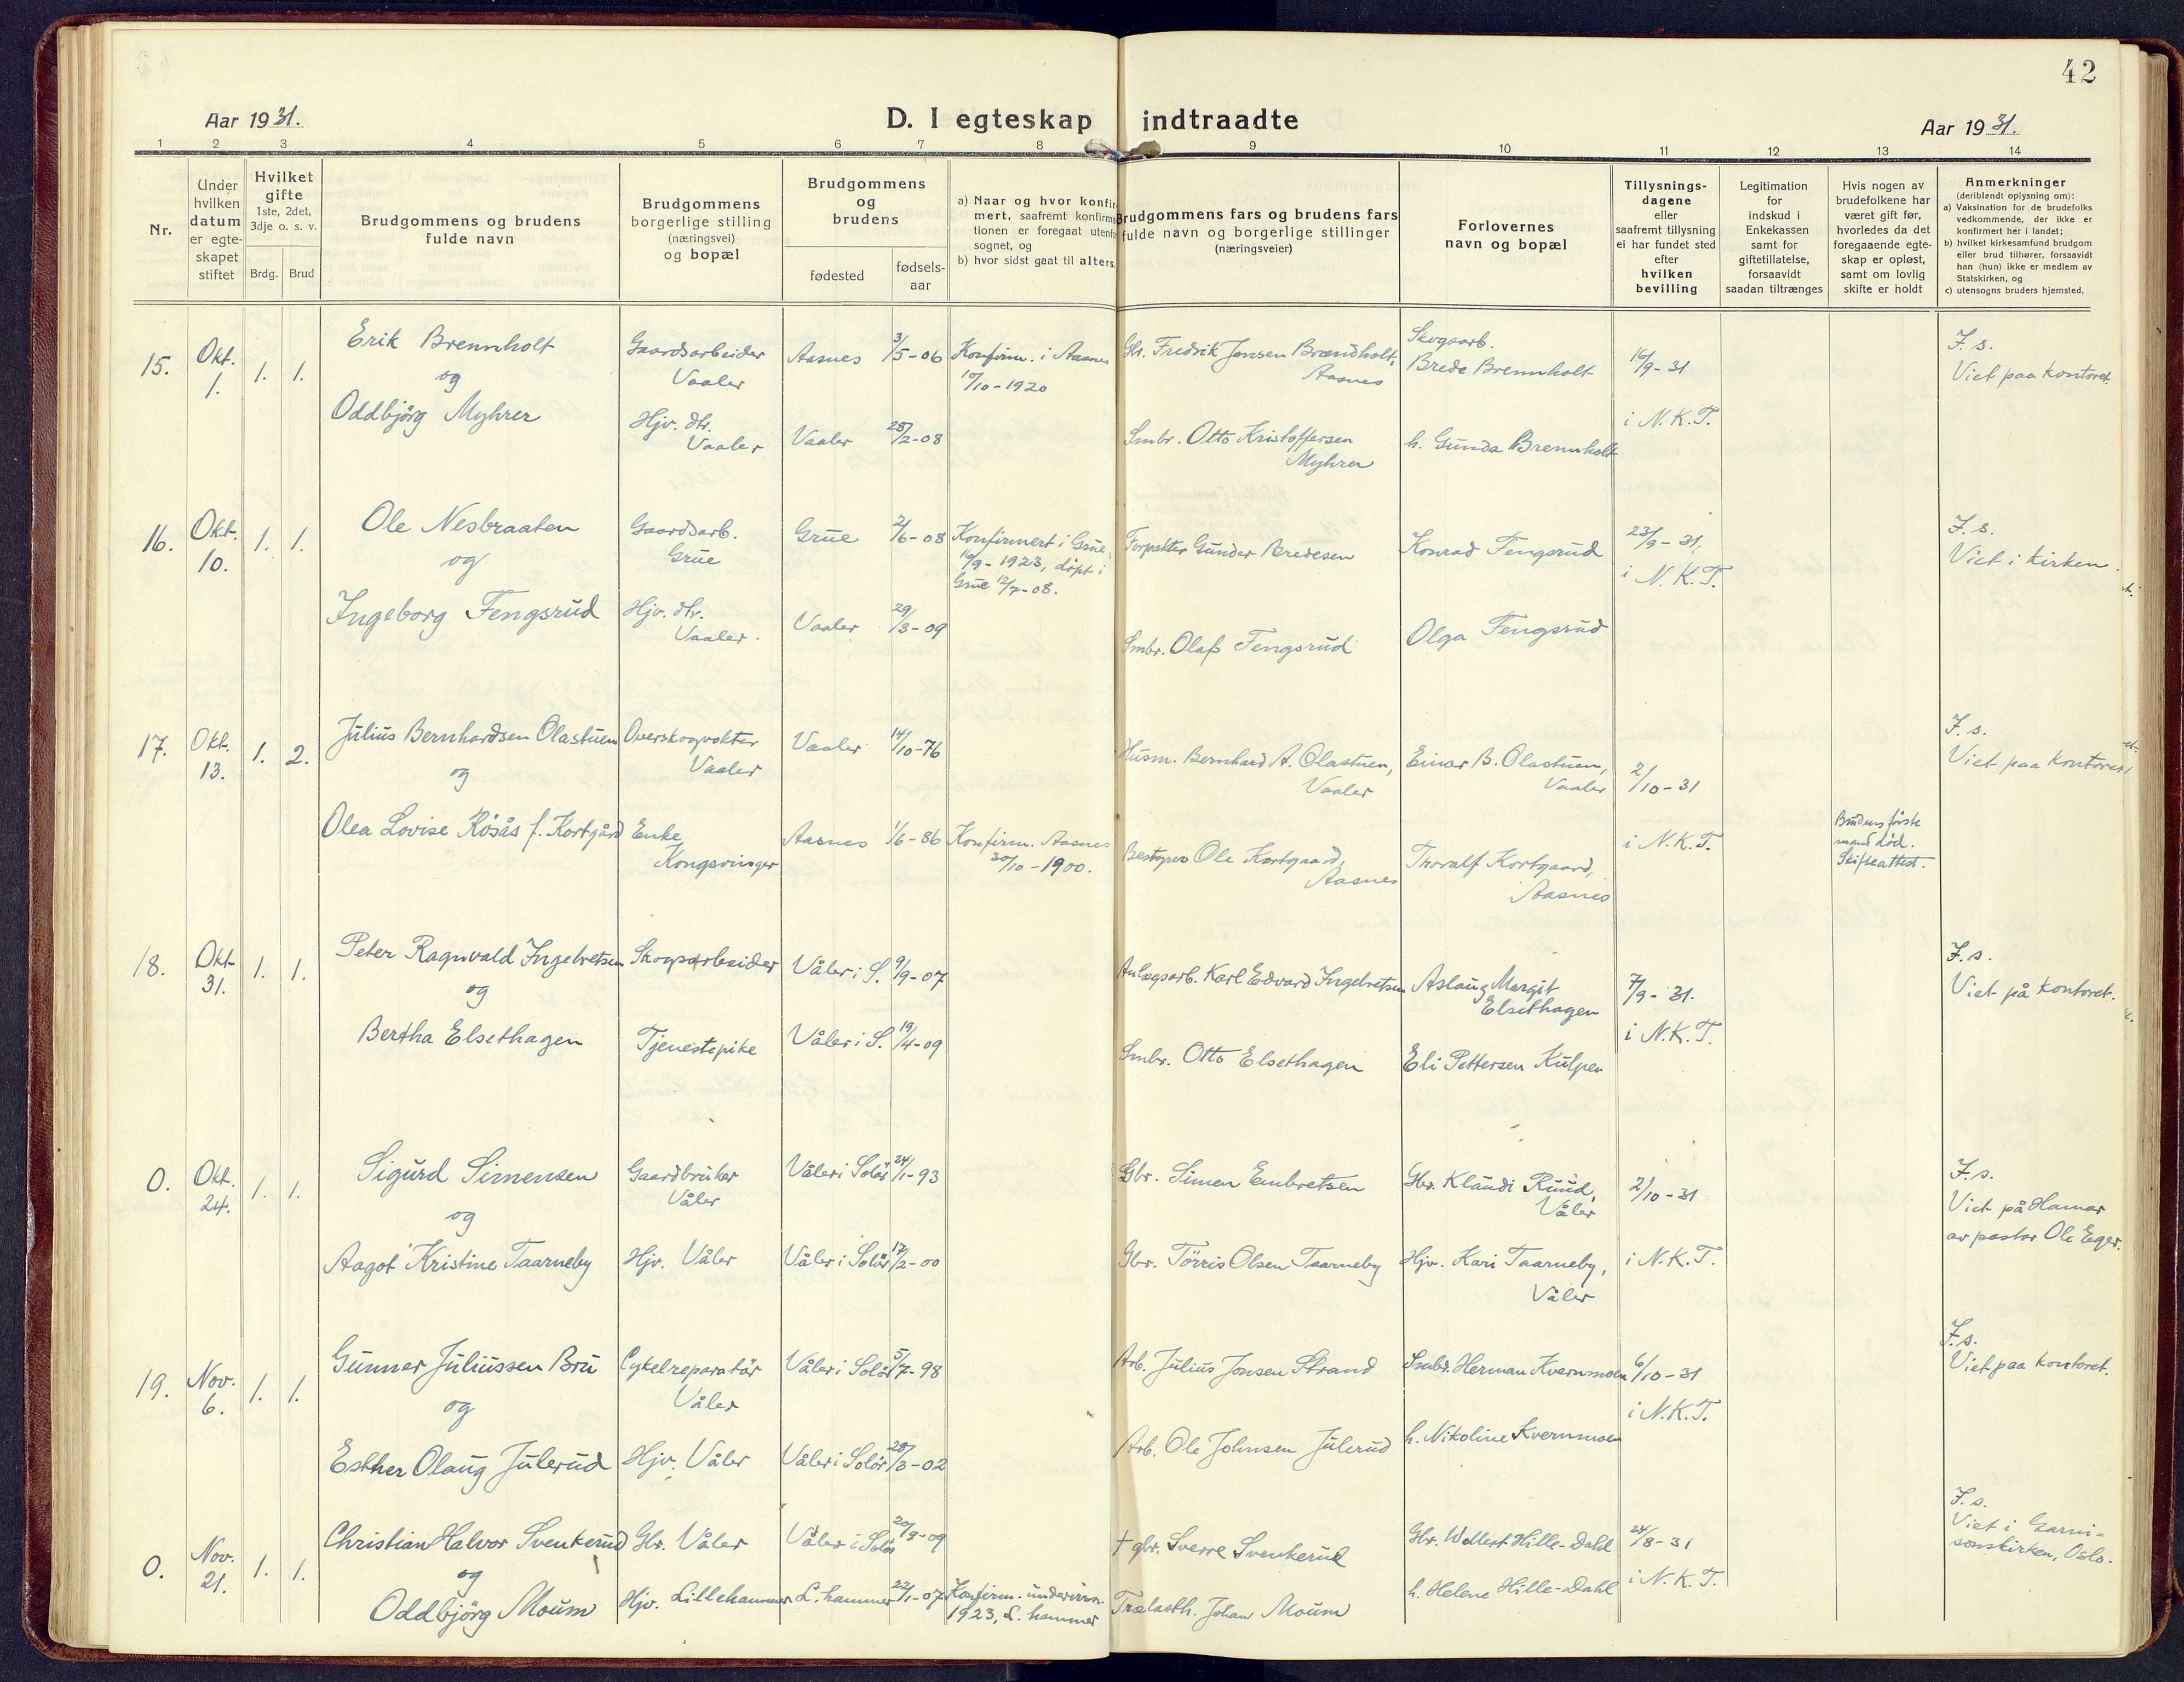 42
Aar 1931.
D. I egteskap indtraadte
Aar 1931.
1 2 3 4 5 6 7 8 9 10 11 12 13 14
Nr.
Under
hvilken
datum
er egte-
skapet
stiftet
Hvilket
gifte
1ste, 2det,
3dje o. s. v.
Brdg. Brud
Brudgommens og brudens
fulde navn
Brudgommens
borgerlige stilling
(næringsvei)
og bopæl
Brudgommens
og
brudens
fødested
fødsels-
aar
a) Naar og hvor konfir-
mert, saafremt konfirma
tionen er foregaat utenfo
sognet, og
b) hvor sidst gaat til alters.
Brudgommens fars og brudens fars
fulde navn og borgerlige stillinger
(næringsveier)
Forlovernes
navn og bopæl
Tillysnings-
dagene
eller
saafremt tillysning
ei har fundet sted
efter
hvilken
bevilling
Legitimation
for
indskud i
Enkekassen
samt for
giftetillatelse,
forsaavidt
saadan tiltrænges
Hvis nogen av
brudefolkene har
været gift før,
hvorledes da det
foregaaende egte-
skap er opløst,
samt om lovlig
skifte er holdt
Anmerkninger
(deriblandt oplysning om):
a) Vaksination for de brudefolks
vedkommende, der ikke er
konfirmert her i landet;
b) hvilket kirkesamfund brudgom
eller brud tilhører, forsaavidt
han (hun) ikke er medlem av
Statskirken, og
c) utensogns bruders hjemsted.
15. Okt. 1. 1. 1.
Erik Brennholt
og
Oddbjörg Myhrer
Gaardsarbeider
Vaaler
Hjv. dtr.
Vaaler
Aasnes 3/5-06
Vaaler 28/2-08
Konfirm. i Aasnes
10/10-1920
Gbr. Fredrik Jensen Brændholt,
Aasnes
Smbr. Otto Kristoffersen
Myhrer
Skogsarb.
Brede Brennholt
h. Gunda Brennholt
16/9-31
i N.K.T.
F. s.
Viet paa kontoret.
16. Okt. 10. 1. 1.
Ole Nesbraaten
og
Ingeborg Fengsrud
Gaardsarb.
Grue
Hjv. dtr.
Vaaler.
Grue 2/6-08
Vaaler 29/3-09
Konfirmert i Grue
16/9-1923, döpt i
Grue 12/7-08.
Forpakter Gunder Bredesen
Smbr. Olaf Fengsrud
Konrad Fengsrud
Olga Fengsrud
23/9-31,
i N.K.T.
F. s.
Viet i kirken.
17. Okt. 13. 1. 2.
Julius Bernhardsen Olastuen
og
Olea Lovise Rösås f. Kortgård
Overskogvokter
Vaaler
Enke
Kongsvinger
Vaaler 14/10-76
Aasnes 1/6-86
Konfirm. Aasnes
30/10-1900.
Husm. Bernhard A. Olastuen,
Vaaler
Bestyrer Ole Kortgaard,
Aasnes
Einar B. Olastuen,
Vaaler
Thoralf Kortgaard,
Aasnes
2/10-31
i N.K.T.
Brudens förste
mand död.
Skifteattest.
F. s.
Viet paa kontoret
18. Okt 31. 1. 1.
Peter Ragnvald Ingebretsen
og
Bertha Elsethagen
Skogsarbeider
Tjenestepike
Våler i S. 9/9-07
Våler i S. 19/4-09
Anlægsarb. Karl Edvard Ingebretsen
Smbr. Otto Elsethagen
Aslaug Margit
Elsethagen
Eli Pettersen Kulpen
7/9-31.
i N.K.T.
F. s.
Viet på kontoret.
0. Okt. 24. 1. 1.
Sigurd Simensen
og
Aagot Kristine Taarneby
Gaardbruker
Våler
Hjv. Våler
Våler i Solör 24/1-93
Våler i Solör 17/2-00
Gbr. Simen Embretsen
Gbr. Törris Olsen Taarneby
Gbr. Klaudi Ruud,
Våler
Hjv. Kari Taarneby,
Våler
2/10-31
i N.K.T.
F. s.
Viet på Hamar
av pastor Ole Eger.
19. Nov. 6. 1. 1.
Gunnar Juliussen Bru
og
Esther Olaug Julerud
Cykelreparatör
Våler
Hjv. Våler
Våler i Solör 5/7-98
Våler i Solör 28/3-02
Arb. Julius Jonsen Strand
Arb. Ole Johnsen Julerud
Smbr. Herman Kvernmoen
h. Nikoline Kvernmoen
6/10-31
i N.K.T.
F. s.
Viet paa kontoret.
0. Nov. 21. 1. 1.
Christian Halvor Svenkerud
og
Oddbjörg Moum
Gbr. Våler
Hjv. Lillehammer
Våler i Solör 20/9-09
L. hammer 22/1-07
Konfirm. undervisn.
1923, L. hammer
† gbr. Sverre Svenkerud
Trælasth. Johan Moum
Gbr. Wollert Hille-Dahl
h. Helene Hille-Dahl
24/8-31
i N.K.T.
F. s.
Viet i Garni-
sonskirken, Oslo.